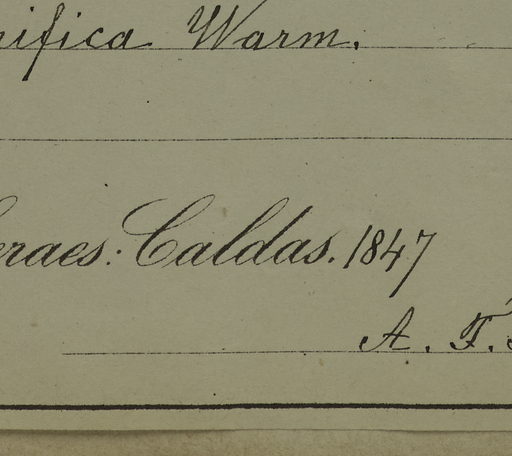 nifica Warm.
eraes: Caldas. 1847
A. F.